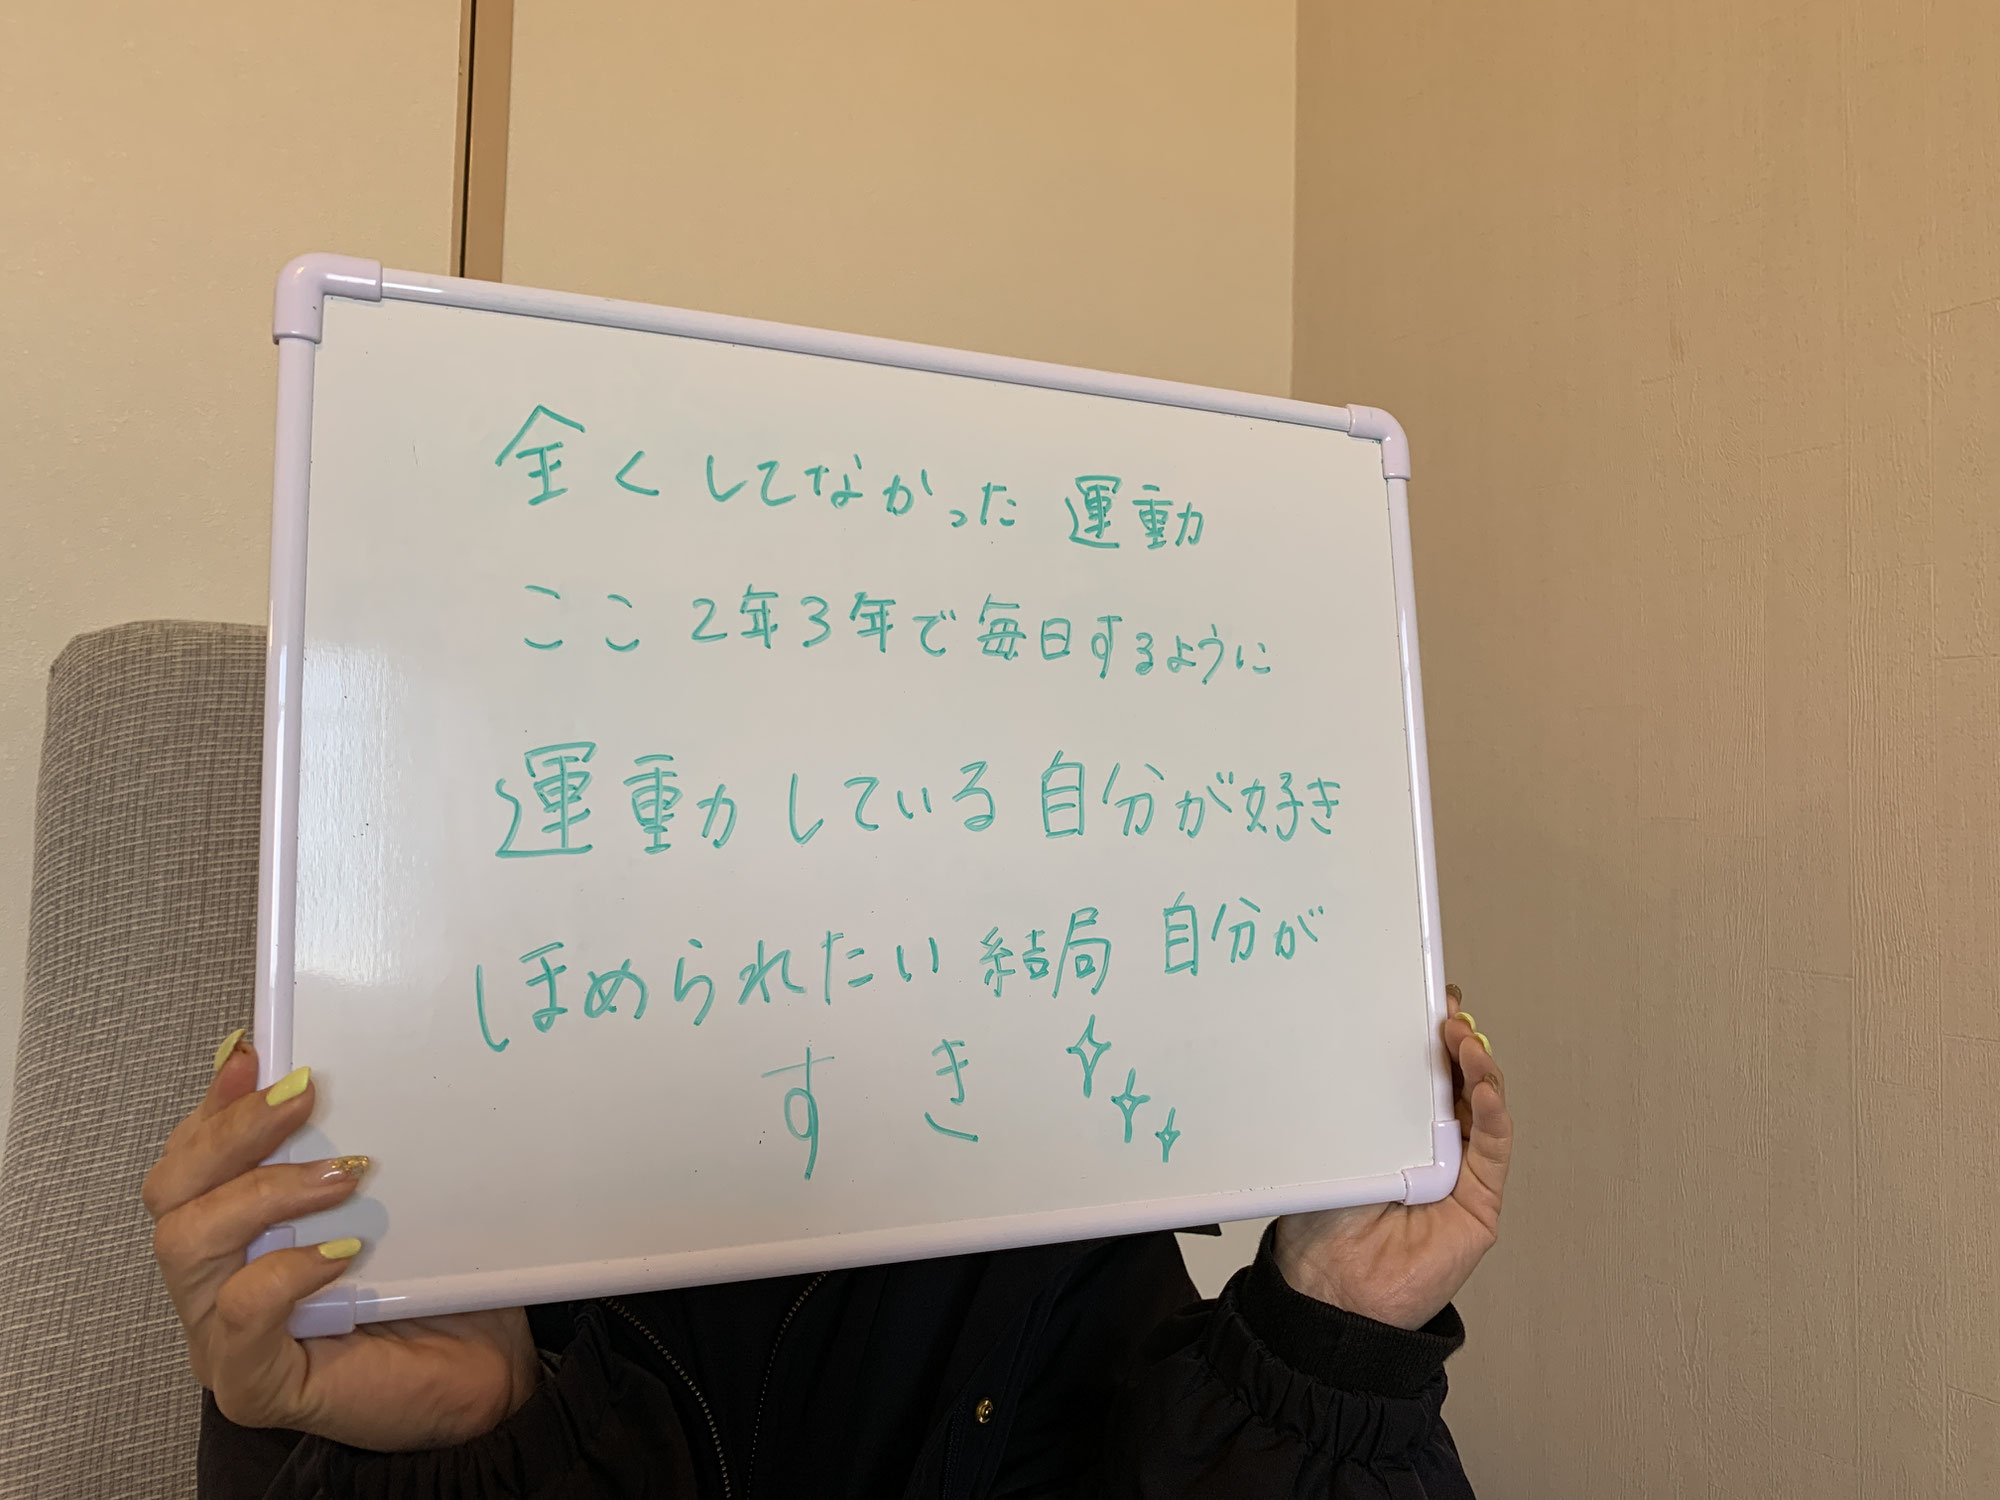 全くしてなかった 運動
ここ 2年3年で毎日するように
運動している 自分が好き
ほめられたい 結局 自分が
すき